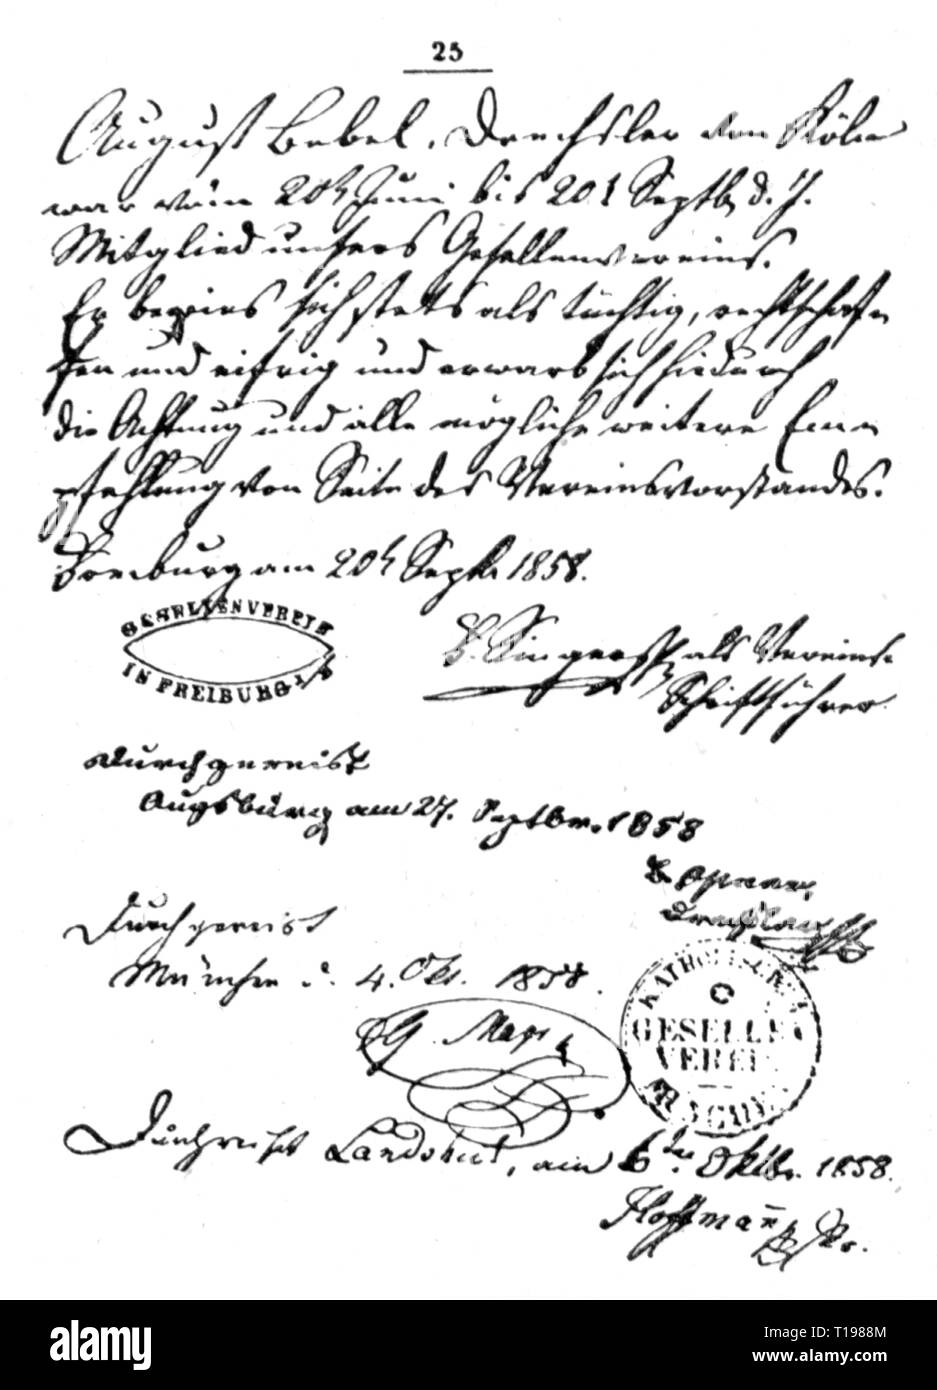 25
August Bebel, Drechsler von Köln
war vom 20t Juni bis 20t Septb. d. J.
Mitglied unsers Gesellenvereins.
Er bewies sich stets als tüchtig, rechtschaf-
fen und eifrig und erwarb sich hiedurch
die Achtung und alle mögliche weitere Em-
pfehlung von Seite des Vereinsvorstandes.
Freiburg am 20t Sept. 1858.
GESELLENVEREIN
IN FREIBURG
als Vereins-
Schriftführer
Durchgereist
Augsburg am 27. Septbr. 1858
Durchgereist
München d. 4. Okt. 1858.
GESELLE
VEREI
Durchreist Landshut, am 6ten Oktbr. 1858.
Hoffmann
alamy
Image ID: T1988M
www.alamy.com